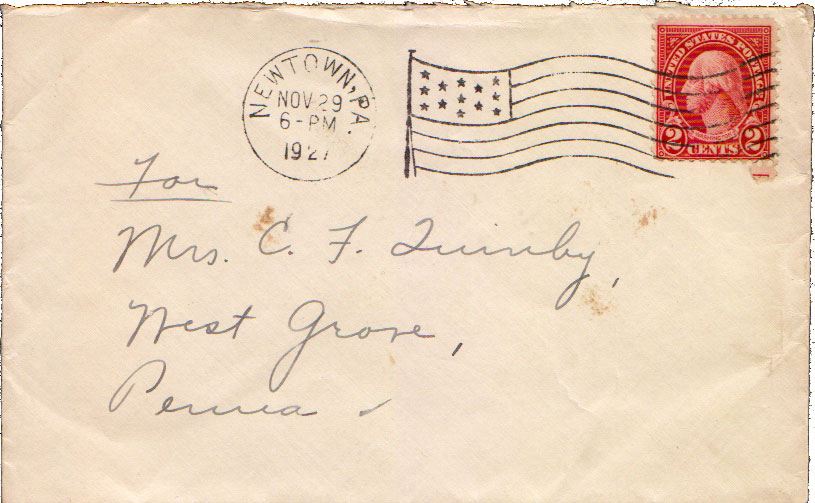 NEWTOWN, PA.
NOV 29
6-PM
1927
UNITED STATES POSTAGE
2 CENTS 2
For
Mrs. C. F. Quinby,
West Grove,
Penna